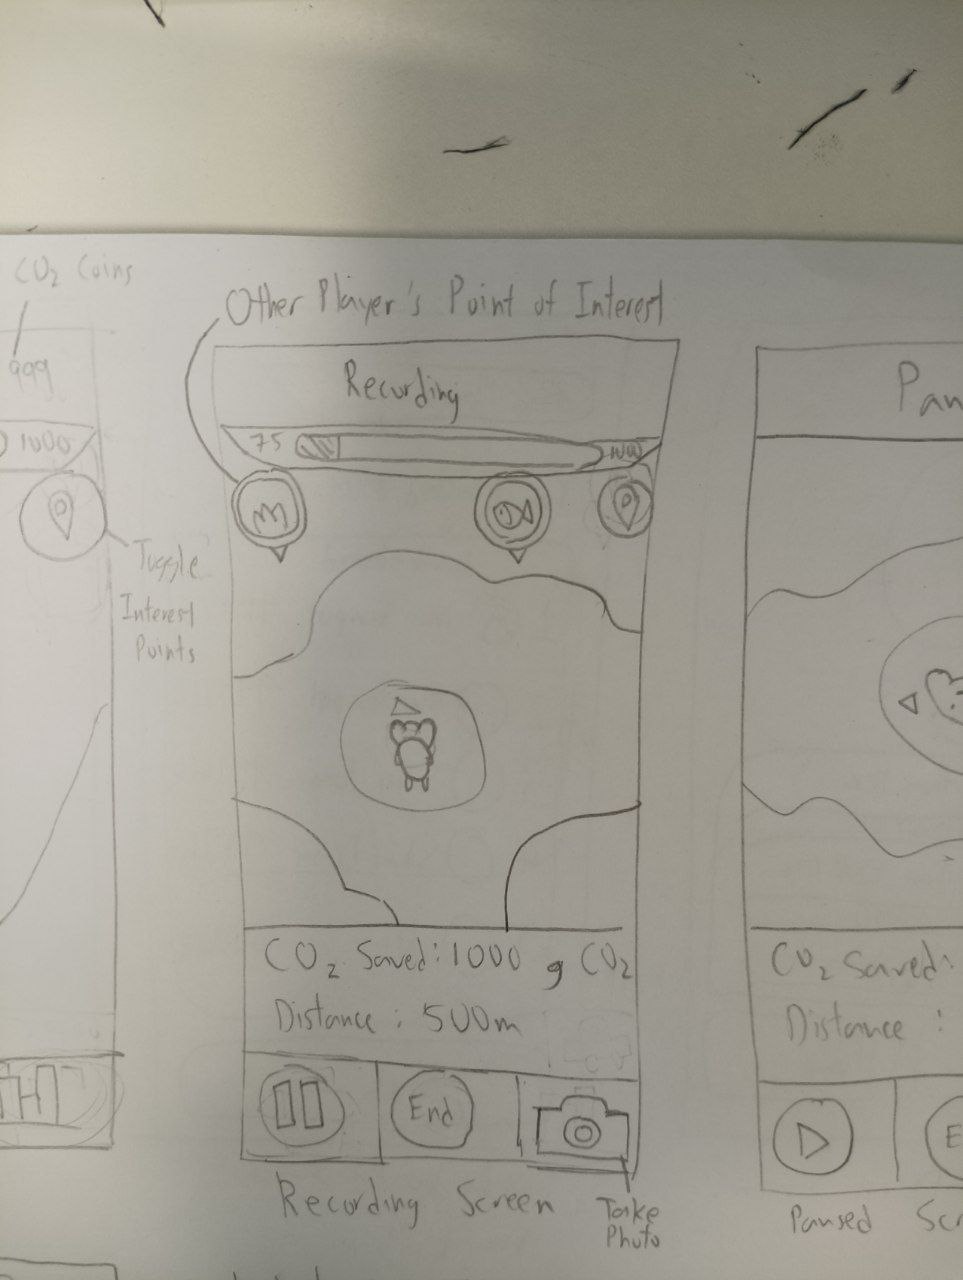 CO₂ Coins
999
1000
Toggle
Interest
Points
Other Player's Point of Interest
Recording
75
CO₂ Saved: 1000 g CO₂
Distance : 500m
End
Recording Screen
Take
Photo
CO₂ Saved:
Distance :
Paused